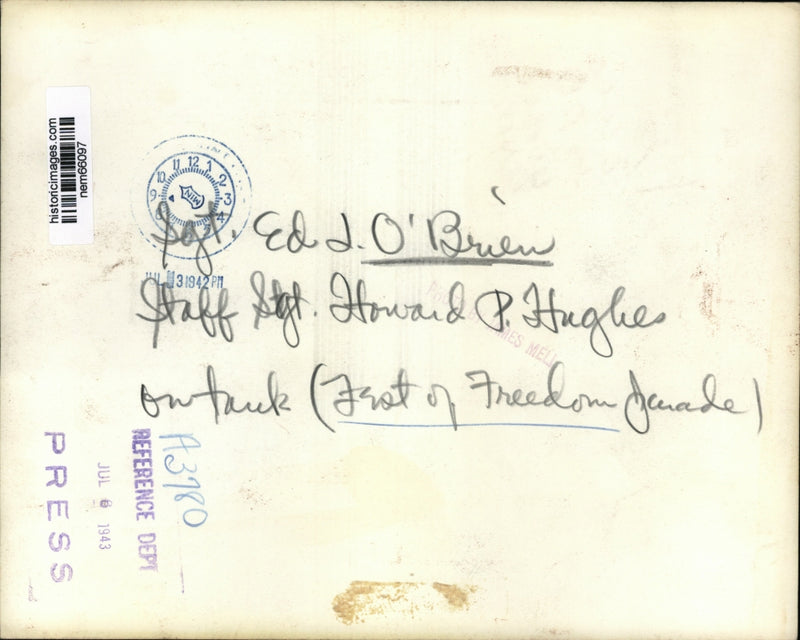 historicimages.com
nem66097
12 1 2 3 4 8 9 10 11
MIN
Sgt. Ed J. O'Brien
JUL 31942 PM
Staff Sgt. Howard P. Hughes
on tank (Fest of Freedom parade)
A3780
REFERENCE DEPT
JUL 8 1943
PRESS